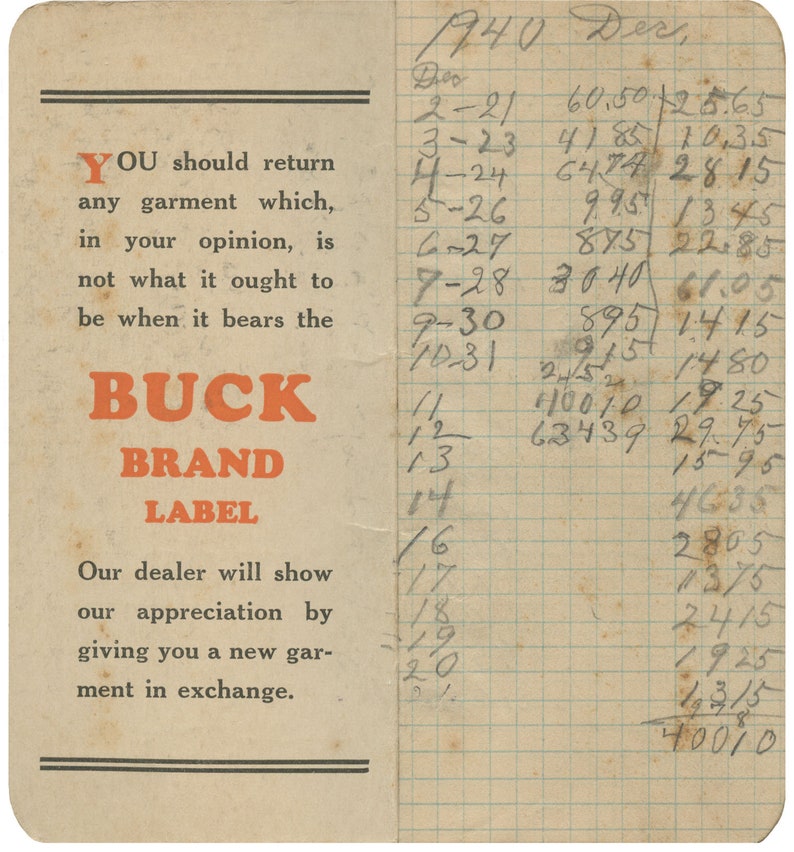 YOU should return
any garment which,
in your opinion, is
not what it ought to
be when it bears the
BUCK
BRAND
LABEL
Our dealer will show
our appreciation by
giving you a new gar-
ment in exchange.
1940 Dec.
Dec
2-21 60.50 25.65
3-23 4185 10.35
4-24 64.74 2815
5-26 995 1345
6-27 875 22.85
7-28 3040 61.05
9-30 895 1415
10-31 915 1480
11 40010 1925
12 63439 29.75
13 1595
14 4635
16 2805
17 1375
18 2415
19 1925
20 1315
40010